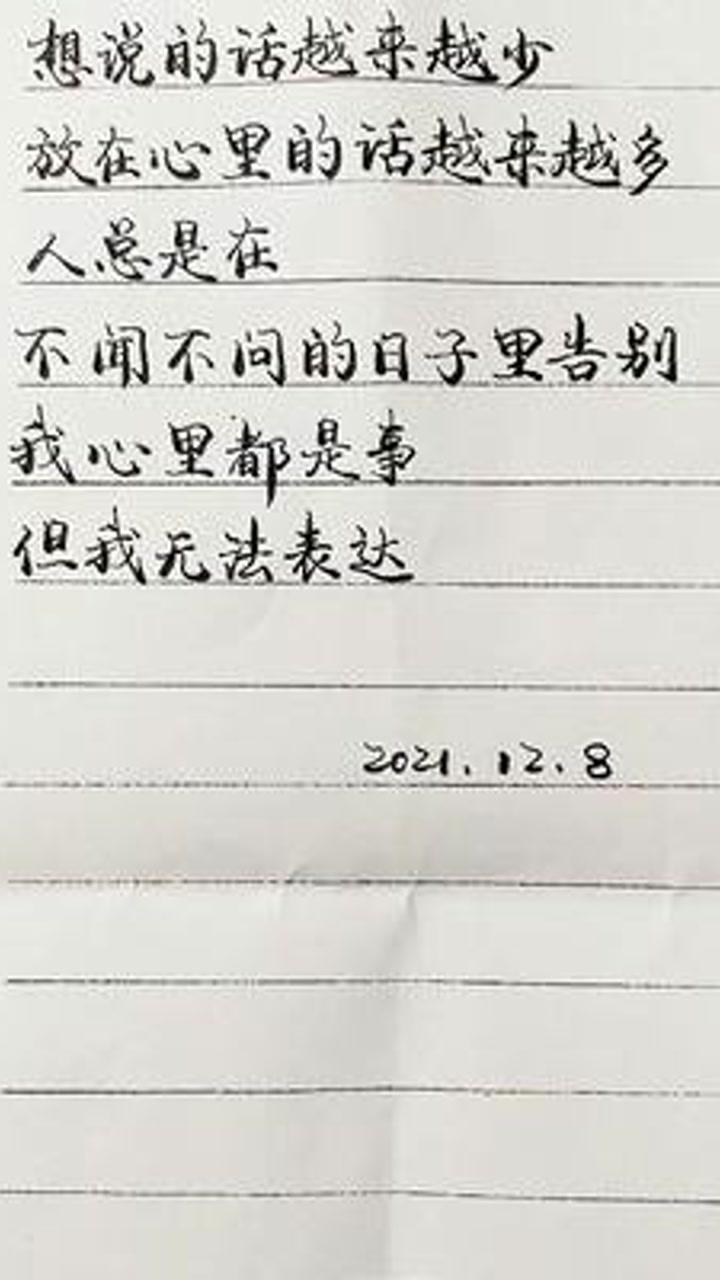 想说的话越来越少
放在心里的话越来越多
人总是在
不闻不问的日子里告别
我心里都是事
但我无法表达
2021.12.8